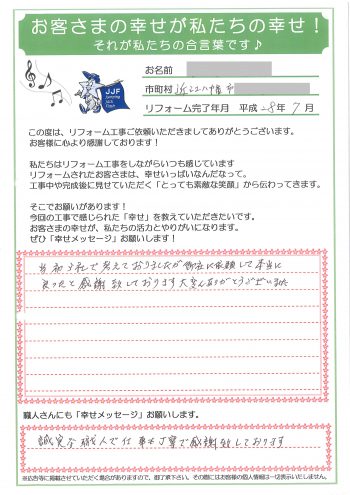 お客さまの幸せが私たちの幸せ！
それが私たちの合言葉です♪
JJF
お名前
市町村 近江八幡市
リフォーム完了年月 平成 28年 7月
この度は、リフォーム工事ご依頼いただきましてありがとうございます。
お客様に心より感謝しております！
私たちはリフォーム工事をしながらいつも感じています
リフォームされたお客さまは、幸せいっぱいなんだなって。
工事中や完成後に見せていただく「とっても素敵な笑顔」から伝わってきます。
そこでお願いがあります！
今回の工事で感じられた「幸せ」を教えていただきたいです。
お客さまの幸せが、私たちの活力とやりがいになります。
ぜひ「幸せメッセージ」お願いします！
当初 社で考えておりましたが御社に依頼して本当に
良かったと感謝致しております大変ありがとうございました
職人さんにも「幸せメッセージ」お願いします。
誠実な職人で仕事も丁寧で感謝致しております
※広告等に掲載させていただく場合がありますので、御了承下さい。その際にはお客様の個人情報は一切表示いたしません。